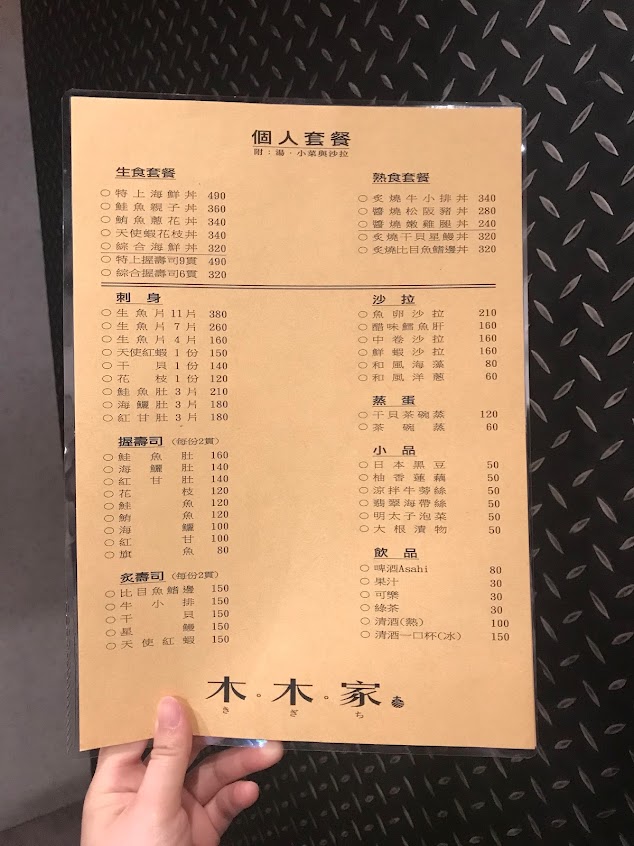 個人套餐
附：湯．小菜與沙拉
生食套餐
○特上海鮮丼 490
○鮭魚親子丼 360
○鮪魚蔥花丼 340
○天使蝦花枝丼 340
○綜合海鮮丼 320
○特上握壽司9貫 490
○綜合握壽司6貫 320
熟食套餐
○炙燒牛小排丼 340
○醬燒松阪豬丼 280
○醬燒嫩雞腿丼 240
○炙燒干貝星鰻丼 320
○炙燒比目魚鰭邊丼 320
刺身
○生魚片11片 380
○生魚片7片 260
○生魚片4片 160
○天使紅蝦1份 150
○干貝1份 140
○花枝1份 120
○鮭魚肚3片 210
○海鱺肚3片 180
○紅甘肚3片 180
握壽司（每份2貫）
○鮭魚肚 160
○海鱺肚 140
○紅甘肚 140
○花枝 120
○鮭魚 120
○鮪魚 120
○海鱺 100
○紅甘 100
○旗魚 80
炙壽司（每份2貫）
○比目魚鰭邊 150
○牛小排 150
○干貝 150
○星鰻 150
○天使紅蝦 150
沙拉
○魚卵沙拉 210
○醋味鱈魚肝 160
○中卷沙拉 160
○鮮蝦沙拉 160
○和風海藻 80
○和風洋蔥 60
蒸蛋
○干貝茶碗蒸 120
○茶碗蒸 60
小品
○日本黑豆 50
○柚香蓮藕 50
○涼拌牛蒡絲 50
○翡翠海帶絲 50
○明太子泡菜 50
○大根漬物 50
飲品
○啤酒Asahi 80
○果汁 30
○可樂 30
○綠茶 30
○清酒(熱) 100
○清酒一口杯(冰) 150
木。木。家
き ぎ ち